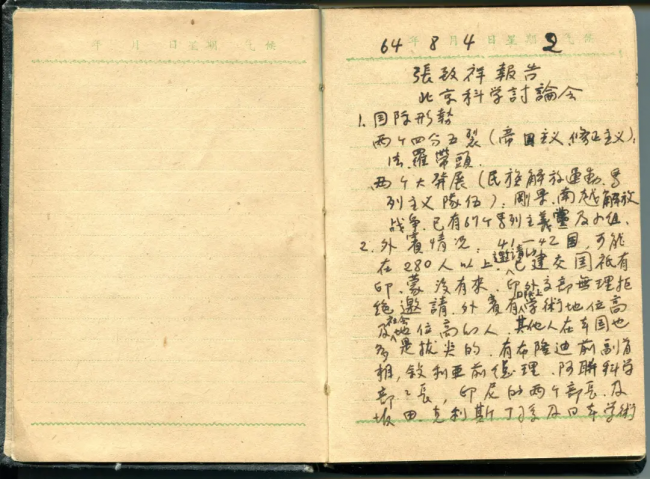 年 月 日 星期 气候
64年8月4日星期2气候
張致祥報告
北京科学討論会
1. 国际形势
两个四分五裂(帝国主义,修正主义),
法.羅帶頭.
两个大發展(民族解放運動.馬
列主义隊伍),剛果.南越解放
战争.已有67个馬列主義黨及小组.
2. 外賓情况:41—42国,可能
在280人以上.邀請的已建交国祇有
印.蒙没有来.印外交部無理拒
绝邀請.外賓有学術地位高
及社会地位高的人.其他人在本国也
多是拔尖的.有布隆迪前副首
相,叙利亚前总理.阿聯科学
部部長,印尼的两个部長.及
坂田.克利斯 及日本学術